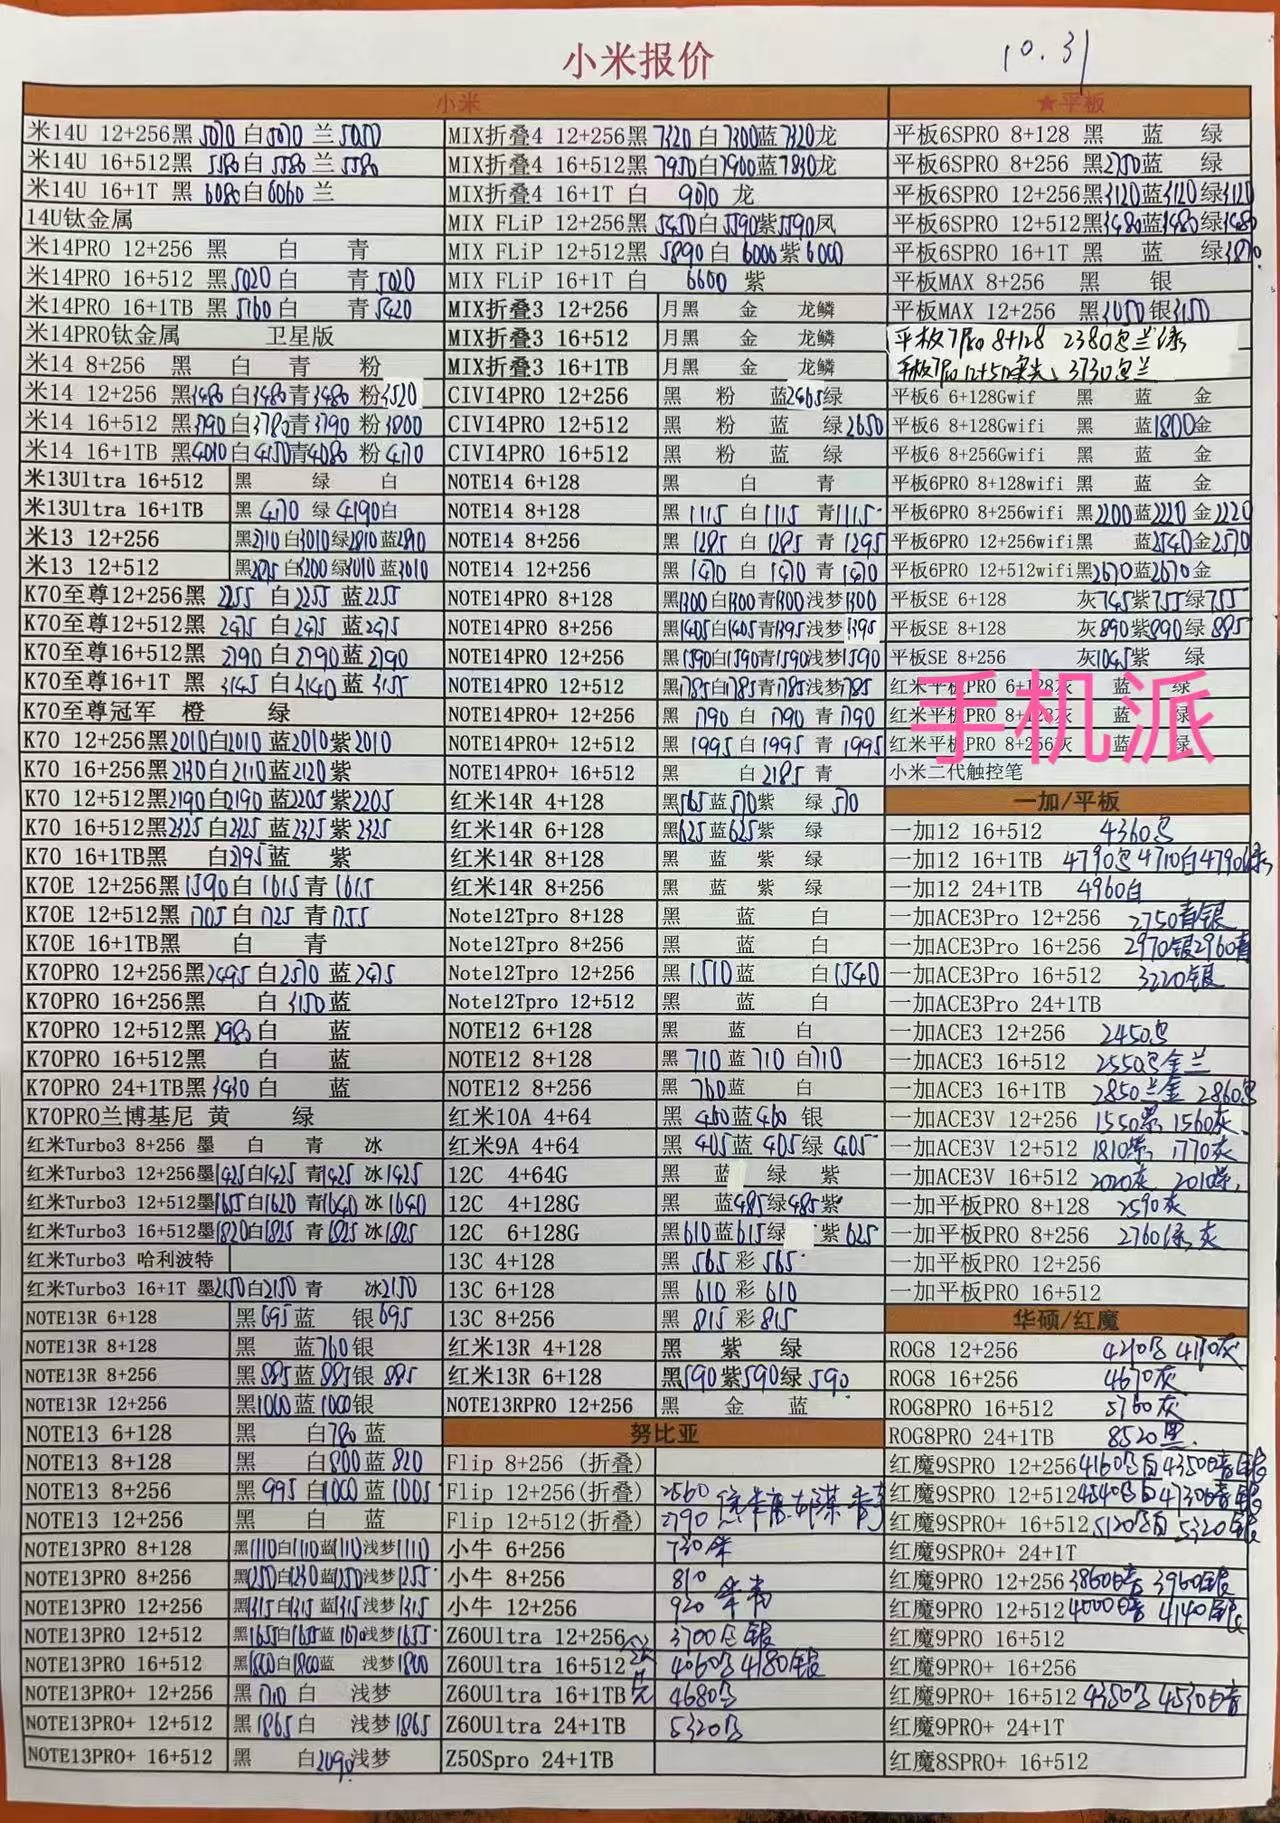 小米报价
10.31
小米
米14U 12+256黑 5070 白5070 兰5050
米14U 16+512黑 5580 白5580 兰5580
米14U 16+1T 黑 6080白6060 兰
14U钛金属
米14PRO 12+256 黑 白 青
米14PRO 16+512 黑5020 白 青5020
米14PRO 16+1TB 黑 5160 白 青5420
米14PRO钛金属 卫星版
米14 8+256 黑 白 青 粉
米14 12+256 黑3480 白3480青3480 粉3520
米14 16+512 黑3790 白3780青3790 粉3800
米14 16+1TB 黑4010 白4150青4080 粉4170
米13Ultra 16+512 黑 绿 白
米13Ultra 16+1TB 黑 4170 绿 4190白
米13 12+256 黑2710白3010绿2810蓝2890
米13 12+512 黑2875白3200绿3010蓝3010
K70至尊12+256黑 2255 白2255 蓝2255
K70至尊12+512黑 2475 白2475 蓝2475
K70至尊16+512黑 2790 白2790蓝2790
K70至尊16+1T 黑 3145 白3140蓝3155
K70至尊冠军 橙 绿
K70 12+256黑2010白2010 蓝2010紫2010
K70 16+256黑2130白2110蓝2120紫
K70 12+512黑2190白2190蓝2205紫2205
K70 16+512黑2325白2325 蓝2325紫2325
K70 16+1TB黑 白2795蓝 紫
K70E 12+256黑1590白1615青1615
K70E 12+512黑 1705白1725 青1755
K70E 16+1TB黑 白 青
K70PRO 12+256黑2495 白2570 蓝2475
K70PRO 16+256黑 白3150蓝
K70PRO 12+512黑2980白 蓝
K70PRO 16+512黑 白 蓝
K70PRO 24+1TB黑3430 白 蓝
K70PRO兰博基尼 黄 绿
红米Turbo3 8+256 墨 白 青 冰
红米Turbo3 12+256墨1425白1425 青1425 冰1425
红米Turbo3 12+512墨1655白1620 青1640 冰1640
红米Turbo3 16+512墨1820白1825 青1825 冰1825
红米Turbo3 哈利波特
红米Turbo3 16+1T 墨2150白2150 青 冰2150
NOTE13R 6+128 黑695蓝 银695
NOTE13R 8+128 黑 蓝760银
NOTE13R 8+256 黑885蓝885银885
NOTE13R 12+256 黑1000蓝1000银
NOTE13 6+128 黑 白780蓝
NOTE13 8+128 黑 白800蓝820
NOTE13 8+256 黑995白1000蓝1005
NOTE13 12+256 黑 白 蓝
NOTE13PRO 8+128 黑1110白1110蓝1110浅梦1110
NOTE13PRO 8+256 黑1250白1230蓝1250浅梦1255
NOTE13PRO 12+256 黑1315白1315蓝1315浅梦1315
NOTE13PRO 12+512 黑1655白1655蓝1670浅梦1655
NOTE13PRO 16+512 黑1800白1800蓝 浅梦1800
NOTE13PRO+ 12+256 黑1710 白 浅梦
NOTE13PRO+ 12+512 黑1865白 浅梦1865
NOTE13PRO+ 16+512 黑 白2090浅梦
MIX折叠4 12+256黑7320白7300蓝7320龙
MIX折叠4 16+512黑7950白7900蓝7830龙
MIX折叠4 16+1T 白 9070 龙
MIX FLiP 12+256黑5450白5590紫5590凤
MIX FLiP 12+512黑5890白 6000紫6000
MIX FLiP 16+1T 白 6600 紫
MIX折叠3 12+256 月黑 金 龙鳞
MIX折叠3 16+512 月黑 金 龙鳞
MIX折叠3 16+1TB 月黑 金 龙鳞
CIVI4PRO 12+256 黑 粉 蓝2465绿
CIVI4PRO 12+512 黑 粉 蓝 绿2650
CIVI4PRO 16+512 黑 粉 蓝 绿
NOTE14 6+128 黑 白 青
NOTE14 8+128 黑1115 白1115 青1115
NOTE14 8+256 黑1285 白1285 青1295
NOTE14 12+256 黑1470 白1470 青1470
NOTE14PRO 8+128 黑1300白1300青1300浅梦1300
NOTE14PRO 8+256 黑1405白1405青1395浅梦1395
NOTE14PRO 12+256 黑1590白1590青1590浅梦1590
NOTE14PRO 12+512 黑1785白1785青1785浅梦1785
NOTE14PRO+ 12+256 黑1790 白1790 青1790
NOTE14PRO+ 12+512 黑1995白1995 青1995
NOTE14PRO+ 16+512 黑 白2185青
红米14R 4+128 黑565蓝570紫 绿570
红米14R 6+128 黑625蓝625紫 绿
红米14R 8+128 黑 蓝 紫 绿
红米14R 8+256 黑 蓝 紫 绿
Note12Tpro 8+128 黑 蓝 白
Note12Tpro 8+256 黑 蓝 白
Note12Tpro 12+256 黑1510蓝 白1540
Note12Tpro 12+512 黑 蓝 白
NOTE12 6+128 黑 蓝 白
NOTE12 8+128 黑710蓝710白710
NOTE12 8+256 黑760蓝 白
红米10A 4+64 黑 460蓝460 银
红米9A 4+64 黑 405蓝405绿405
12C 4+64G 黑 蓝 绿 紫
12C 4+128G 黑 蓝485绿485紫
12C 6+128G 黑610蓝615绿 紫625
13C 4+128 黑 565 彩565
13C 6+128 黑 610 彩610
13C 8+256 黑 815 彩815
红米13R 4+128 黑 紫 绿
红米13R 6+128 黑590紫590绿590
NOTE13RPRO 12+256 黑 金 蓝
努比亚
Flip 8+256 (折叠)
Flip 12+256(折叠) 2560
Flip 12+512(折叠) 2790
小牛 6+256 730
小牛 8+256 810
小牛 12+256 920
Z60Ultra 12+256 3700 银
Z60Ultra 16+512 4060 4180银
Z60Ultra 16+1TB 4680
Z60Ultra 24+1TB 5320
Z50Spro 24+1TB
★平板
平板6SPRO 8+128 黑 蓝 绿
平板6SPRO 8+256 黑2750蓝 绿
平板6SPRO 12+256黑3120蓝3120绿3120
平板6SPRO 12+512黑3480蓝3480绿3480
平板6SPRO 16+1T 黑 蓝 绿3870
平板MAX 8+256 黑 银
平板MAX 12+256 黑3050银3150
平板7Pro 8+128 2380黑兰绿
平板7Pro 12+512 3730黑兰
平板6 6+128Gwif 黑 蓝 金
平板6 8+128Gwifi 黑 蓝1800金
平板6 8+256Gwifi 黑 蓝 金
平板6PRO 8+128wifi 黑 蓝 金
平板6PRO 8+256wifi 黑2200蓝2220金2220
平板6PRO 12+256wifi黑 蓝2540金2570
平板6PRO 12+512wifi黑2670蓝2670金
平板SE 6+128 灰745紫755绿755
平板SE 8+128 灰890紫890绿885
平板SE 8+256 灰1045紫 绿
红米平板PRO 6+128灰 蓝 绿
红米平板PRO 8+128灰 蓝 绿
红米平板PRO 8+256灰 蓝 绿
手机派
小米二代触控笔
一加/平板
一加12 16+512 4360黑
一加12 16+1TB 4790黑4710白4790绿
一加12 24+1TB 4960白
一加ACE3Pro 12+256 2750青银
一加ACE3Pro 16+256 2970银2960青
一加ACE3Pro 16+512 3220银
一加ACE3Pro 24+1TB
一加ACE3 12+256 2450黑
一加ACE3 16+512 2550黑金兰
一加ACE3 16+1TB 2850兰金 2860黑
一加ACE3V 12+256 1550紫 1560灰
一加ACE3V 12+512 1810紫 1770灰
一加ACE3V 16+512 2020灰 2010紫
一加平板PRO 8+128 2590灰
一加平板PRO 8+256 2760绿灰
一加平板PRO 12+256
一加平板PRO 16+512
华硕/红魔
ROG8 12+256 4210白 4170灰
ROG8 16+256 4670灰
ROG8PRO 16+512 5760灰
ROG8PRO 24+1TB 8520黑
红魔9SPRO 12+256 4160 4350 银
红魔9SPRO 12+512 4540 4730 银
红魔9SPRO+ 16+512 5120 5320 银
红魔9SPRO+ 24+1T
红魔9PRO 12+256 3860 3960银
红魔9PRO 12+512 4000 4140银
红魔9PRO 16+512
红魔9PRO+ 16+256
红魔9PRO+ 16+512 4350 4530
红魔9PRO+ 24+1T
红魔8SPRO+ 16+512